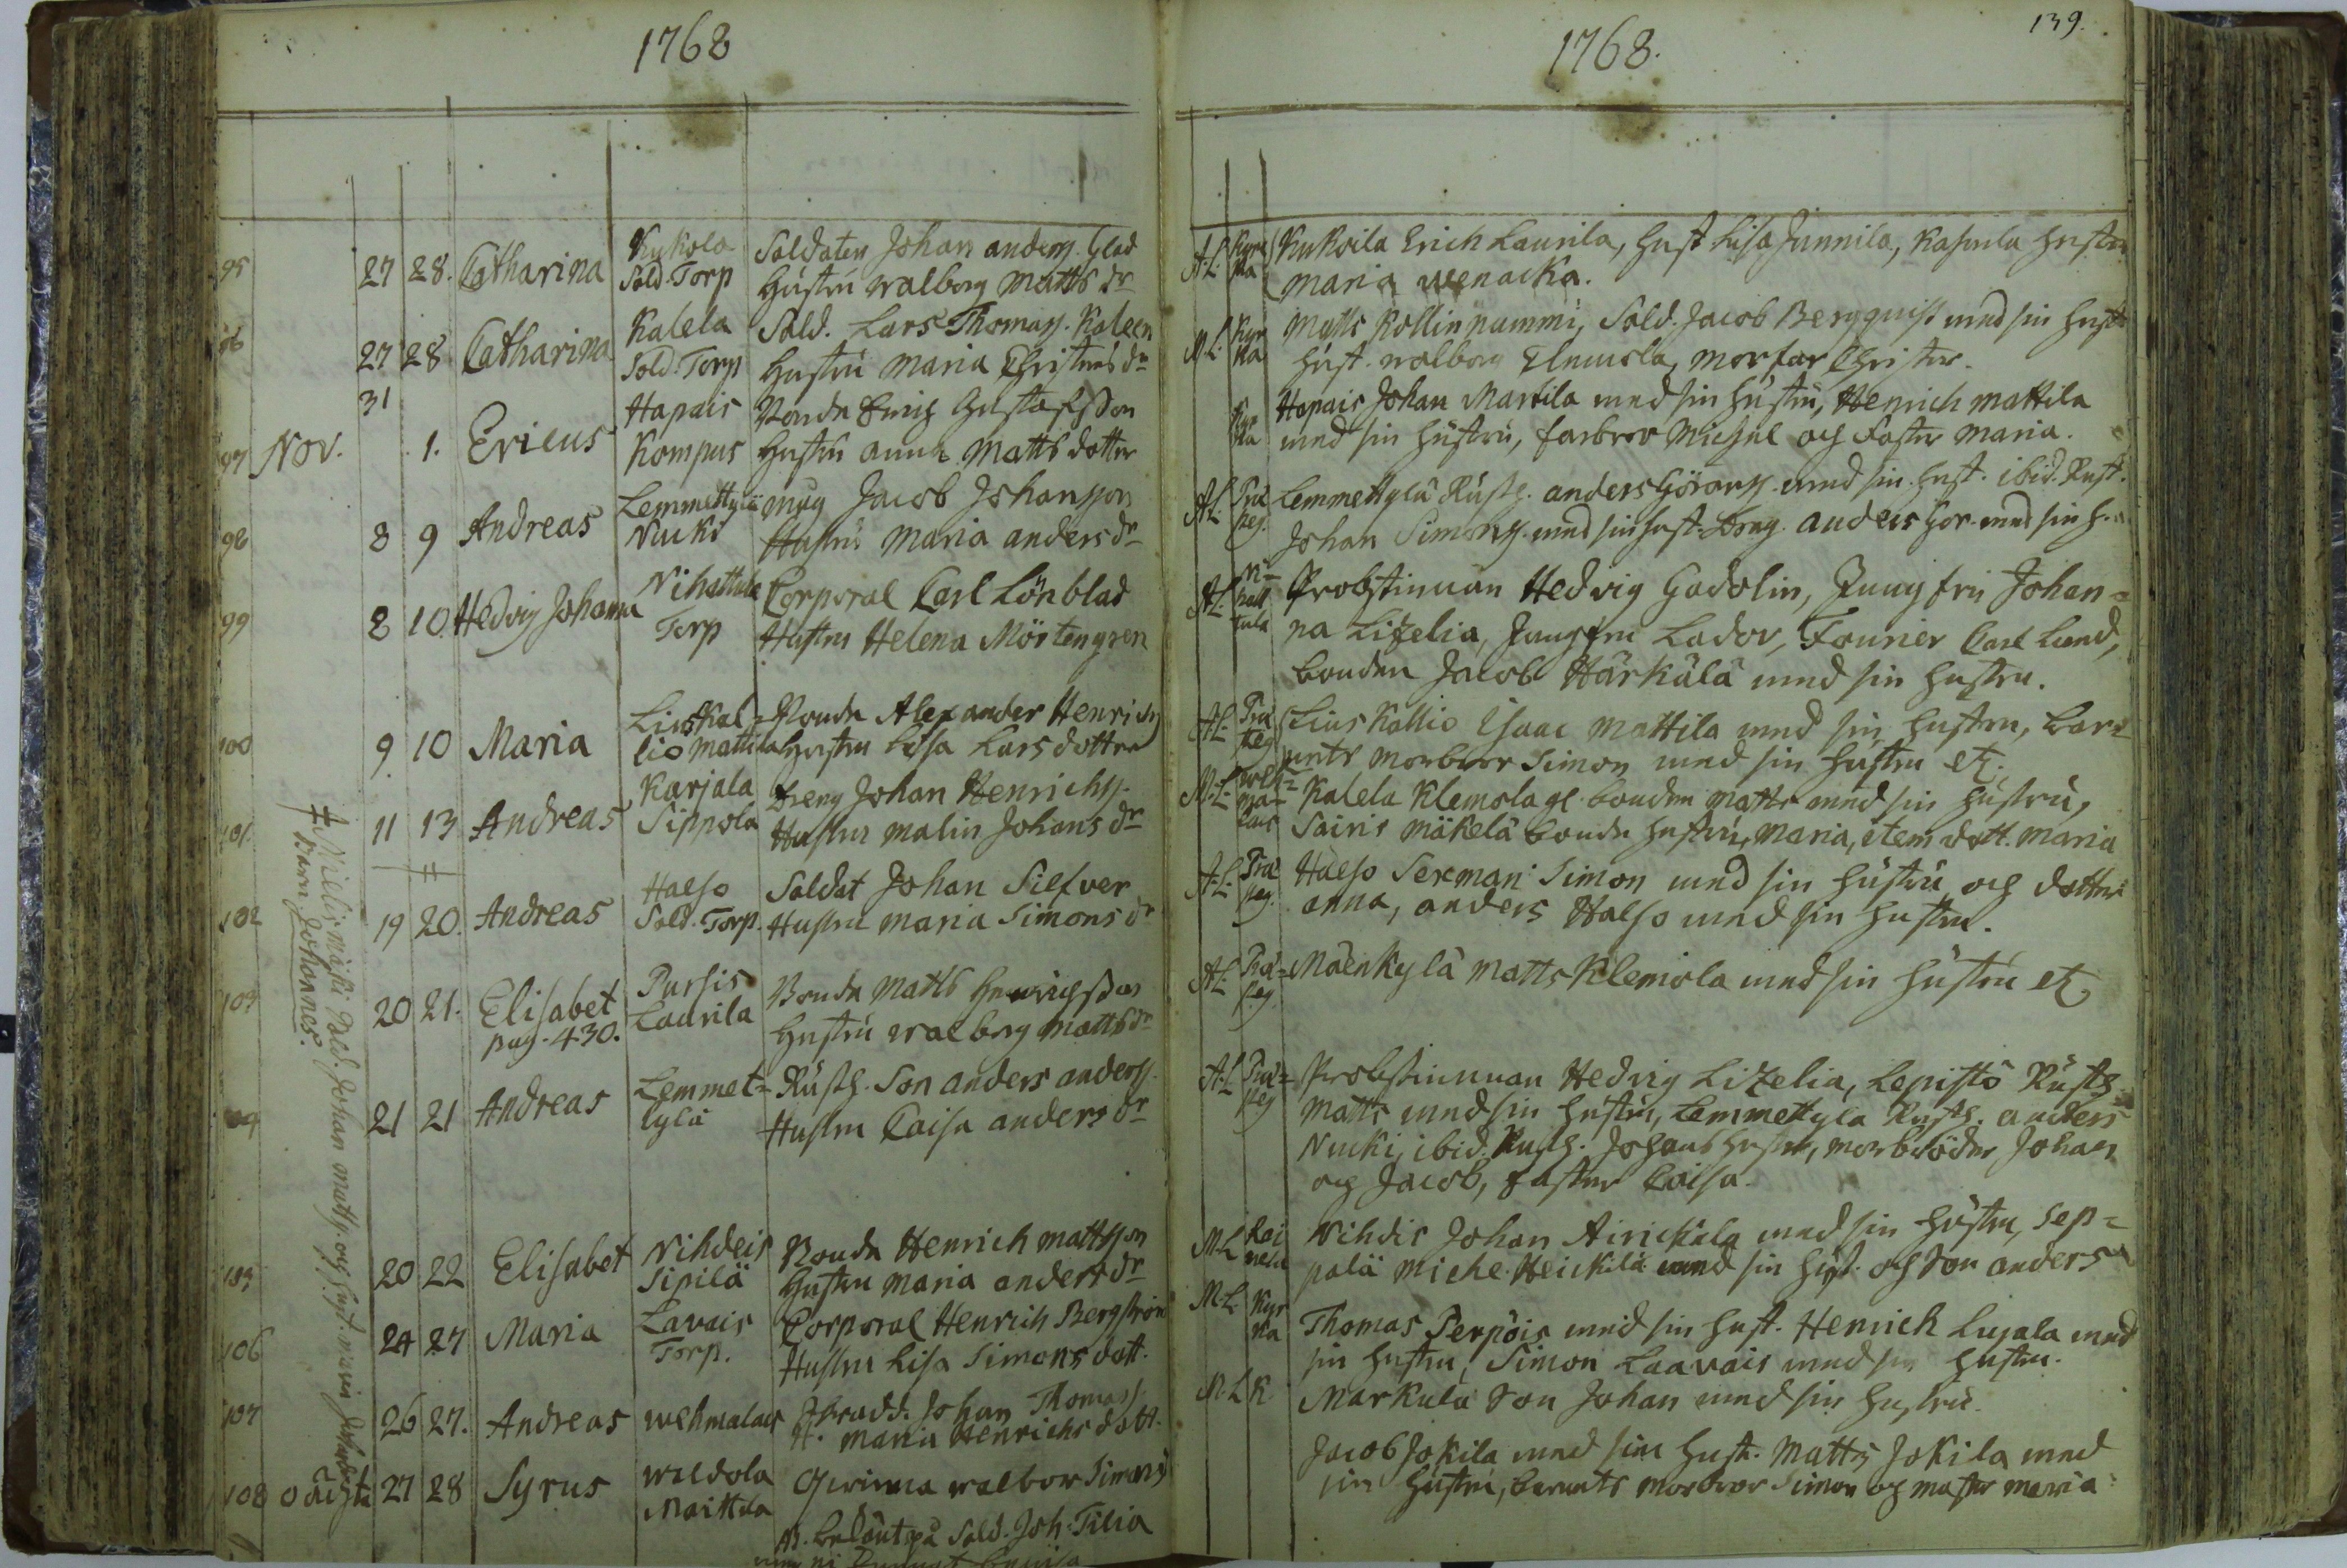 1768
95 27 28. Catharina Kukola Soldaten Johan anderss. Glad
Sold. Torp Hustru walborg Matts dr
96 27 28 Catharina Kalela Sold. Lars Thomass. Kaleen
Sold. Torp Hustru Maria Christers dr
31 Hapais Bonde Erich Gustafsson
97 Nov. 1. Ericus Kompus Hustru anna Matts dotter
Lemmettylä Jacob Johansson
98 8 9 Andreas Nucki Hustru Maria anders dr
Nihattula Corporal Carl Lönblad
99 8 10. Hedvig Johanna Torp Hustru Helena Mörtengren
Liuskal- Bonde Alexander Henrichs
100 9 10 Maria lio mattila Hustru Lisa Larsdotter
Karjala Dreng Johan Henrichss.
101 11 13 Andreas Sippola Hustru malin Johans dr
Halso Soldat Johan Silfver
102 19 20. Andreas Sold. Torp. Hustru maria Simons dr
Pursis Bonde Matts Henrichsson
103 20 21. Elisabet Laurila Hustru walborg Matts dr
pag. 430.
Lemmet- Rusth. Son anders anderss.
104 21 21 Andreas tylä Hustru Caisa anders dr
Nihdeis Bonde Henrich mattsson
105 20 22 Elisabet Sipilä Hustru maria anders dr
Lavais Corporal Henrich Bergström
106 24 27 Maria Torp. Hustru Lisa Simons dott.
107 26 27. Andreas wehmalais Johan Thomass.
H. maria Henrichs dott.
108 oächta 27 28 Syrus wildola Qwinna walbor Simons
Maittla
Sold. Joh. Tilia
Johan matss. och hust.
Barn Johannes.
139.
1768.
A.L. Kyrkia Kukoila Erich Laurila, hust Lisa Junnila, Kaskula hustru
maria wenacka.
M.L. Kyrka Matts Kollinpummi, Sold. Jacob Bergquist med sin hustr
hust. walborg morfar Christer.
Kyrka Hapais Johan Martila med sin hustru, Henrich mattila
med sin hustru, farbror Michel och Faster maria.
A.L. Prästeg. Lemmettylä Rusth. anders Görans. med sin hust. ibid. Rust.
Johan Simonss. med sin hust. Dreng. anders Gör. med sin h.
A.L. Nihattula Probstinnan Hedvig Gadolin, Jungfru Johan=
na Lizelia, Jungfru Ladov, Fourier Carl Lund,
bonden Jacob Härkälä med sin hustru.
A.L. Prästeg Liuskallio Isaac Mattila med sin hustru, bar=
nets morbror Simon med sin hustru etc.
M.L. wehmalais Kalela Klemola gl. bonden Matts med sin hustru,
Sairis Mäkelä bonde hustru, Maria, item dott. maria
A.L. Prästeg. Halso Sexman Simon med sin hustru och dotter
anna, anders Halso med sin hustru.
A.L. Prästeg. Mäenkylä Matts Klemola med sin hustru etc
A.L. Prästeg Probstinnan Hedvig Lizelia, Lepistö Rusth.
Matts med sin hustru, Lemmettyla Rusth. anders
Nucki, ibid. Rusth. Johans hustru, morbröder Johan
och Jacob, faster Caisa.
M.L. Nihdis Johan Airikkala med sin hustru, Sep=
pälä Miche. Heickilä med sin hust. och Son anders
M.L. Kyrka Thomas Perpöis med sin hust. Henrich Lujala med
sin hustru, Simon Laavais med sin hustru.
M.L. K Markula Son Johan med sin hustru.
Jacob Jokila med sin hust. Matts Jokila med
sin hustru, barnets morbror Simon og moster maria